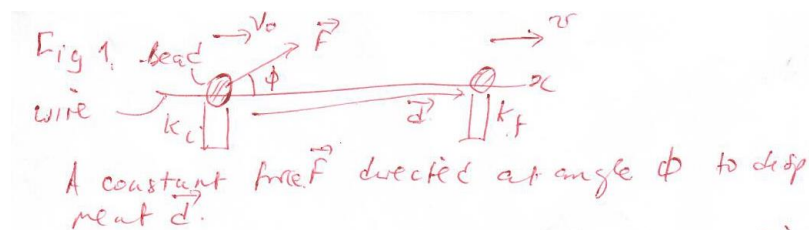 V₀ F⃗ v
Fig 1. Bead ϕ
wire x
Kᵢ d⃗ K_f
A constant force F⃗ directed at angle ϕ to disp
ment d⃗.